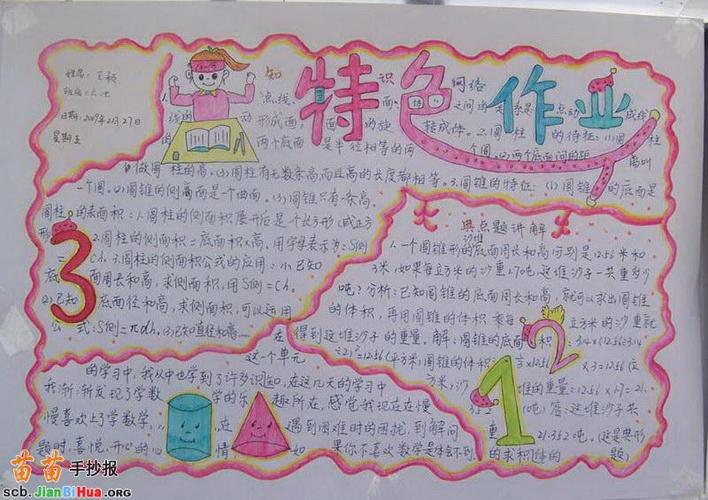 特色作业
日期:2009年2月27日
星期五
知识网络
点、线、面、体之间的关系是点动成线
线的动形成面,面的旋转成体。2.圆柱的特征:(1)圆柱
的两个底面是半径相等的两个圆,(2)两个底面间的距离叫
做圆柱的高。(3)圆柱有无数条高,而且高的长度都相等。3.圆锥的特征:(1)圆锥的底面是
一个圆。(2)圆锥的侧面是一个曲面。(3)圆锥只有一条高。
圆柱的表面积:1.圆柱的侧面积展开后是个长方形(或正方
形)
2.圆柱的侧面积=底面积×高,用字母表示为:S侧
=Ch.3.圆柱的侧面积公式的应用:(1)已知
底面周长和高,求侧面积,用S侧=Ch。
(2)已知底面直径和高,求侧面积,可以运用
公式:S侧=πdh。(3)已知直径和高
3
典点题讲解
1.一个圆锥形的沙堆底面周长和高分别是12.56米和
3米,如果每立方米的沙重1.70吨,这堆沙子一共重多少
吨?分析:已知圆锥的底面周长和高,就可以求出圆锥
的体积,再用圆锥的体积乘每立方米的沙重就
得到这堆沙子的重量。解:圆锥的底面积:3.14×(12.56÷3.14
÷2)²=12.56(平方米)圆锥的体积:×12.56×3=12.56(立
方米)沙堆的重量=12.56×1.7=21.
352(吨)答:这堆沙子共
重21.352吨。(这是典形
的求积体的题)
2
1
在这个单元
的学习中,我从中也学到了许多识知,在这几天的学习中
我渐渐发现了学数学的乐趣所在,感觉我现在在慢
慢喜欢上了学数学,在遇到困难时的困扰,到解问
题时,喜悦,开心的心情如果你不喜欢数学是体会不到
苗苗手抄报
scb.JianBiHua.org